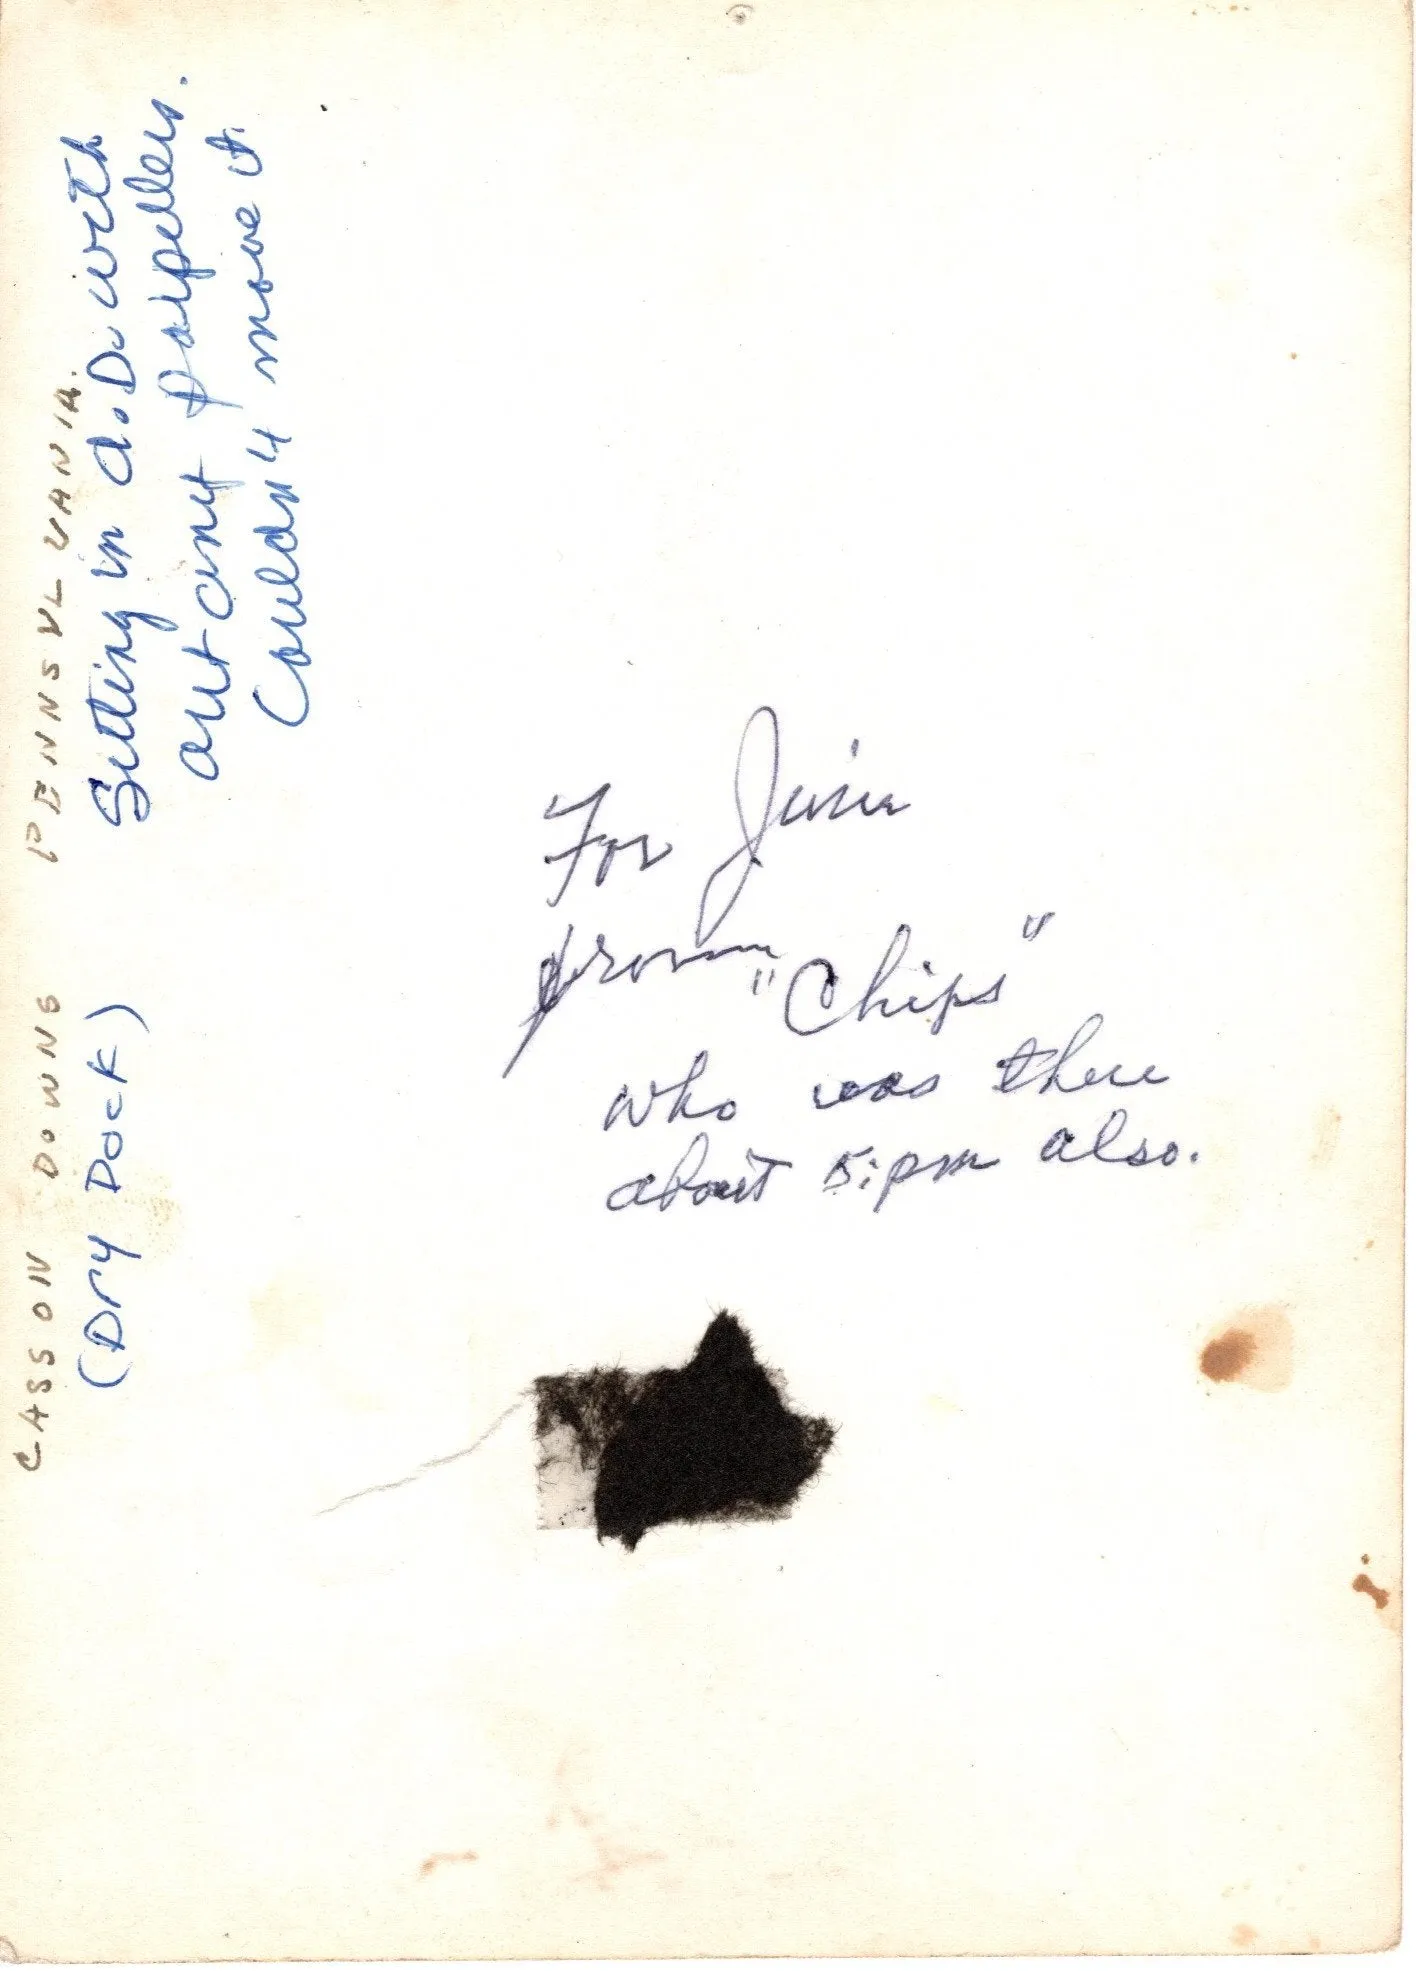 CASSON DOWNS PENNSYLVANIA.
(Dry Dock) Setting in d.D. with
out any porpellers.
Couldn 4 move it.
For Junie
from "Chips"
who was there
about 5:pm also.